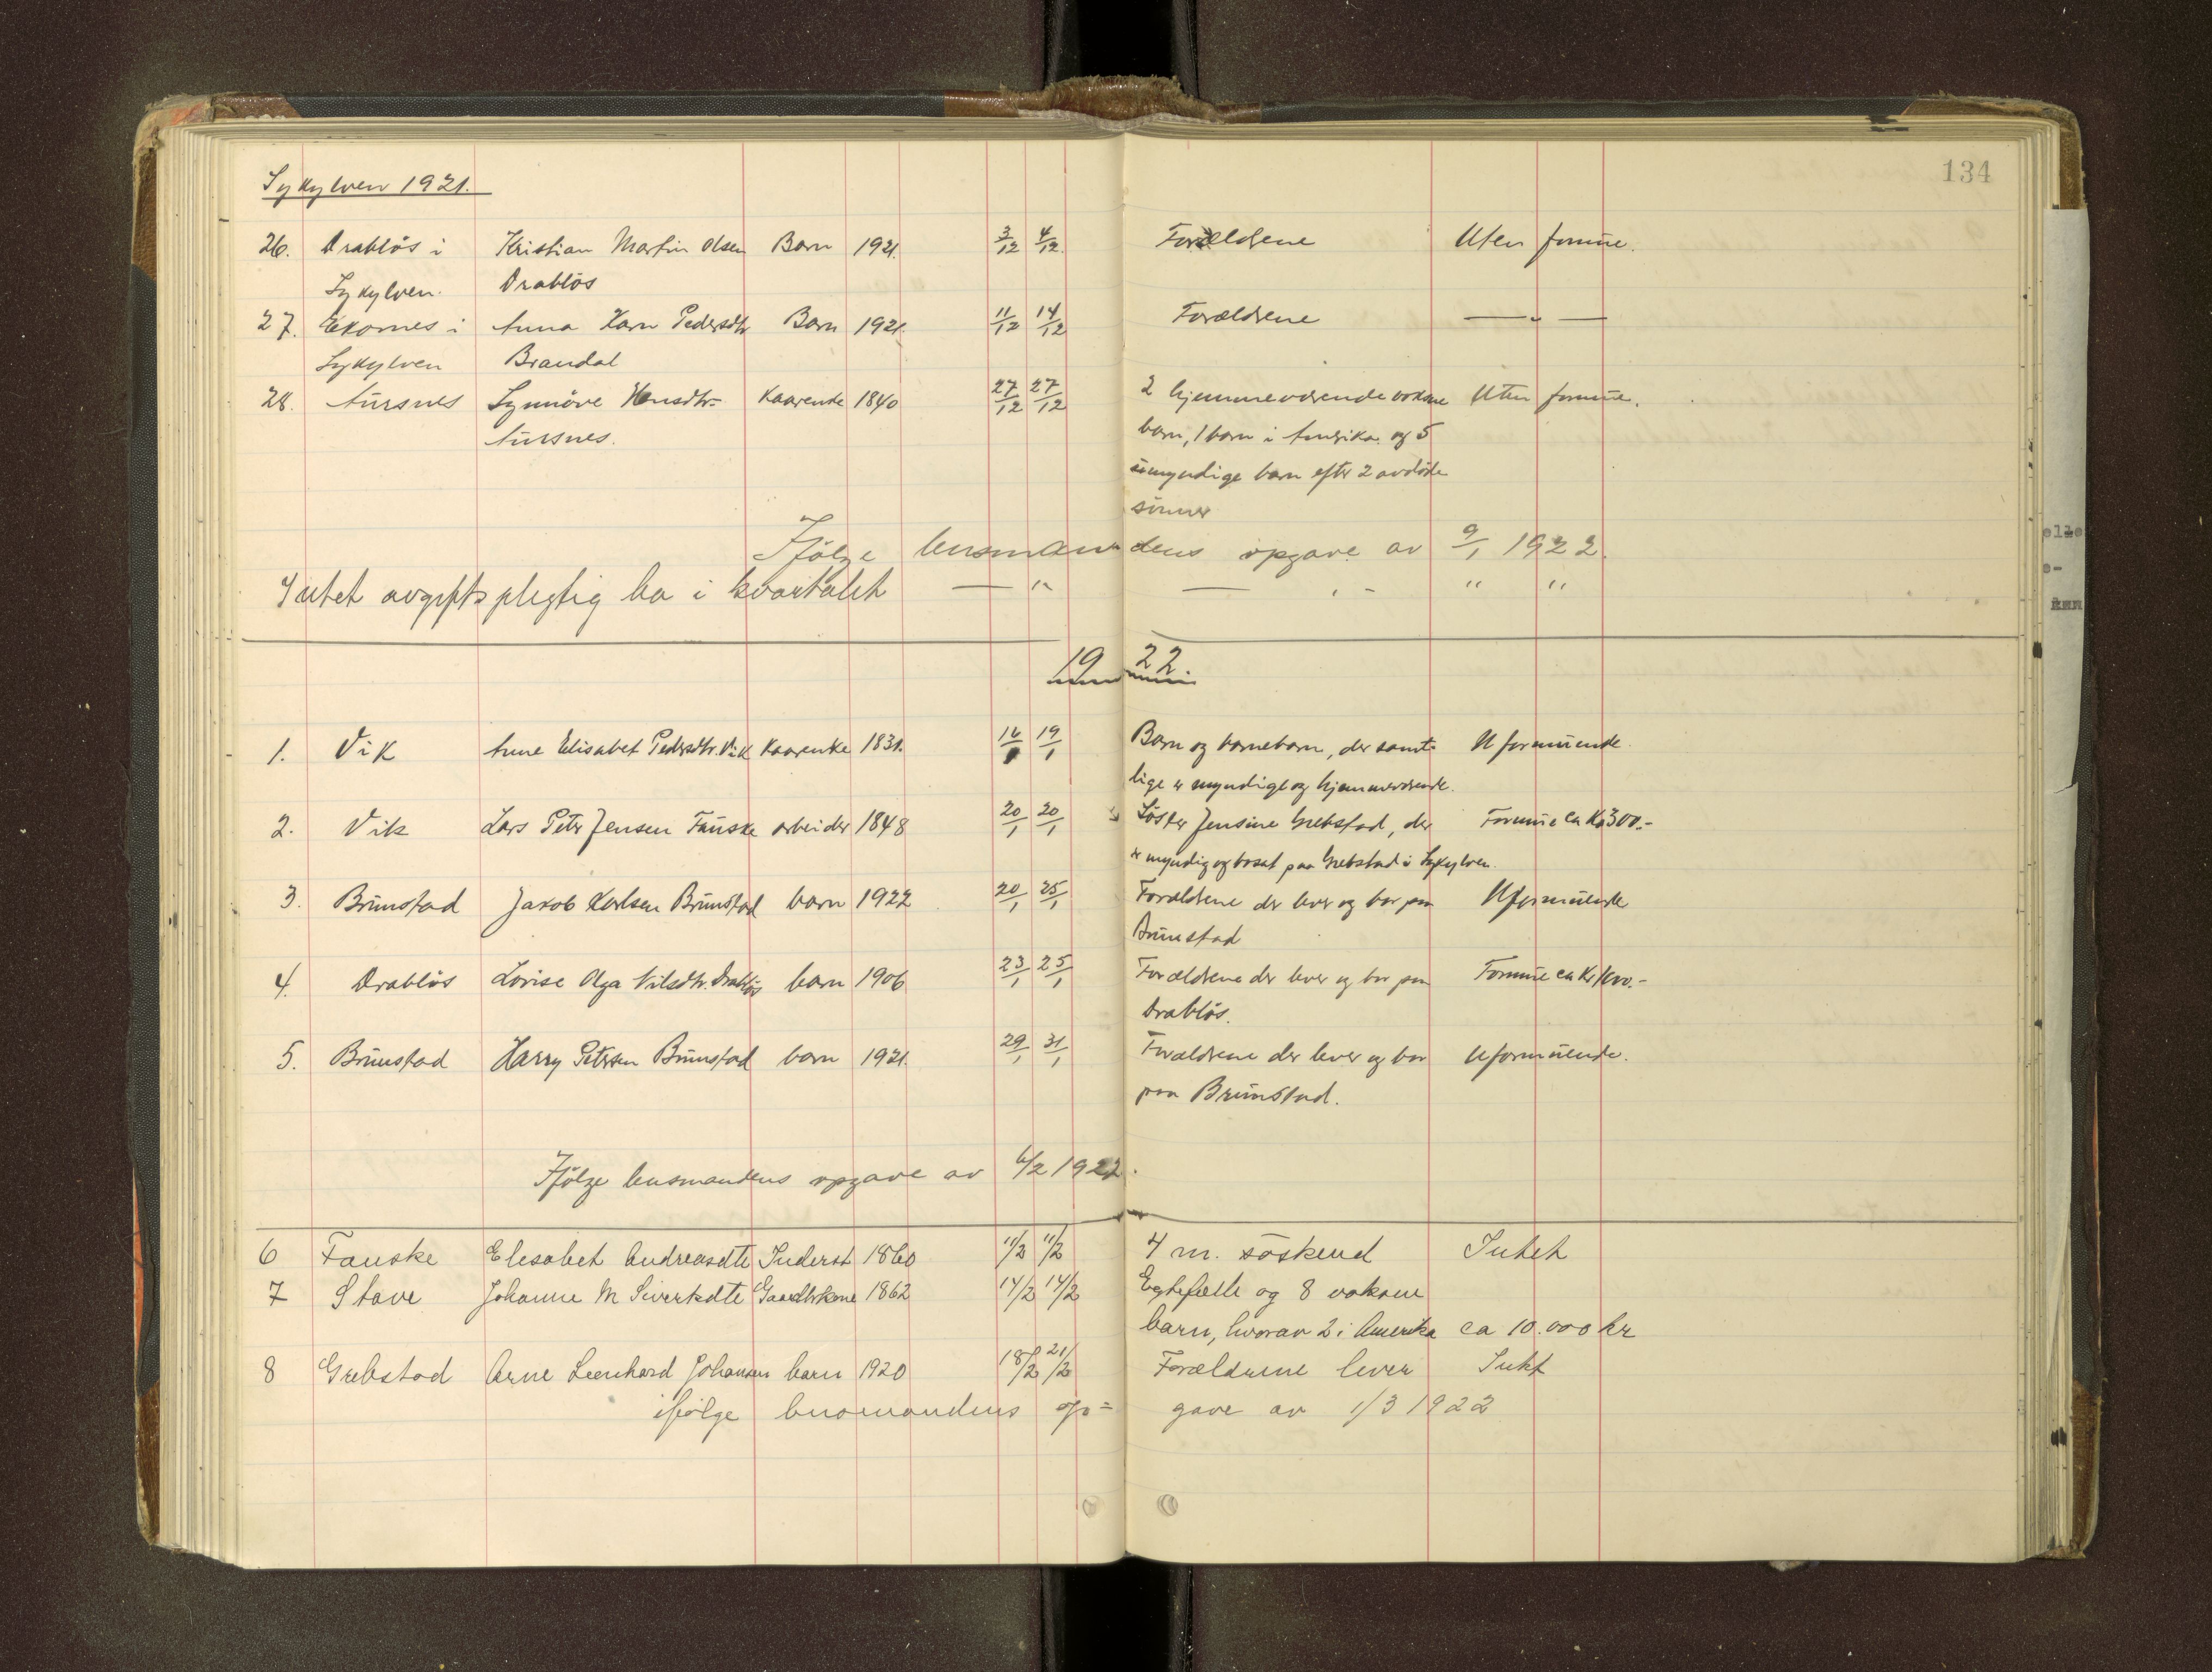 134
Sykylven 1921.
26. Drabløs i Kristian Martin Olsen Barn 1921. 3/12 4/12 Forældrene Uten formue.
Sykylven. Drabløs
27. Ekornes i Anna Karn Pedersdtr Barn 1921 11/12 14/12 Forældrene — " —
Sykylven Brandal
28. Aursnes Synnøve Hansdtr. Kaarenke 1840 27/12 27/12 2 hjemmeværende voksne Uten formue.
Aursnes. barn, 1 barn i Amerika og 5
umyndige barn efter 2 avdøde
sønner
Ifølge lensmandens opgave av 9/1 1922.
Intet avgiftspligtig bo i kvartalet — " — " — " "
1922.
1. Vik Anne Elisabet Pedersdtr. Vik Kaarenke 1831. 16/1 19/1 Barn og barnebarn, der samt- Uformuende.
lige er myndige og hjemmeværende.
2. Vik Lars Peter Jensen Fauske arbeider 1848 20/1 20/1 Søster Jensine Grebstad, der Formue ca Kr 300.-
er myndig og bosat paa Grebstad i Sykylven.
3. Brunstad Jakob Karlsen Brunstad barn 1922 20/1 25/1 Forældrene der lever og bor paa Uformuende
Brunstad
4. Drabløs Lovise Olga Nilsdtr. Drabløs barn 1906 23/1 25/1 Forældrene der lever og bor paa Formue ca Kr
Drabløs.
5. Brunstad Harry Petersen Brunstad barn 1921. 29/1 31/1 Forældrene der lever og bor Uformuende.
paa Brunstad.
Ifølge lensmandens opgave av 6/2 1922.
6 Fauske Elesabet Andreasdtr Inderst 1860 11/2 11/2 4 m. søskend Intet
7 Stave Johanne M Sivertsdtr Gaardbrkone 1862 14/2 14/2 Egtefælle og 8 voksne
barn, hvorav 2 i Amerika ca 10.000 kr
8 Grebstad Arne Leenhard Johansen barn 1920 18/2 21/2 Forældrene lever Intet
ifølge lensmandens op= gave av 1/3 1922
elle
e-